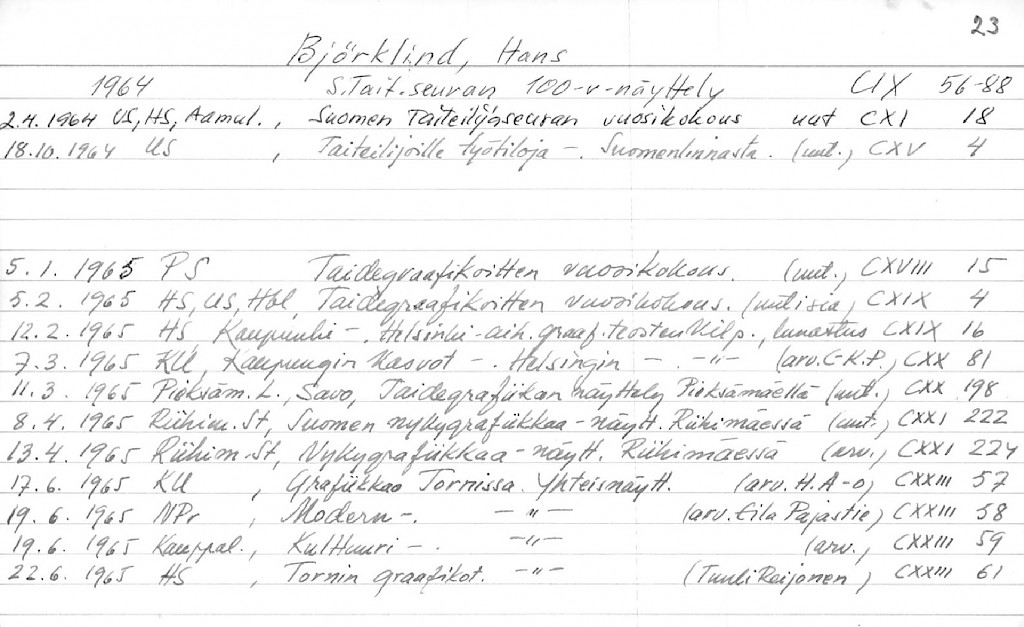 23
Björklind, Hans
1964 S.Tait.seuran 100-v-näyttely LIX 56-88
2.4.1964 US, HS, Aamul., Suomen Taiteilijaseuran vuosikokous uut CXI 18
18.10.1964 US , Taiteilijoille työtiloja -. Suomenlinnasta. (uut., CXV 4
5.1. 1965 PS Taidegraafikoitten vuosikokous. (uut., CXVIII 15
5.2. 1965 HS, US, Hbl, Taidegraafikoitten vuosikokous. (uutisia, CXIX 4
12.2. 1965 HS, Kaupunki -. Helsinki-aih. graaf. teosten kilp., lunastus CXIX 16
7.3. 1965 KU, Kaupungin kasvot -. Helsingin - -"- (arv. E-K.P., CXX 81
11.3. 1965 Pieksäm. L., Savo, Taidegrafiikan näyttely Pieksämäellä (uut., CXX 198
8.4. 1965 Riihim. St, Suomen nykygrafiikkaa-näytt. Riihimäessä (uut., CXXI 222
13.4. 1965 Riihim. St, Nykygrafiikkaa-näytt. Riihimäessä (arv., CXXI 224
17.6. 1965 KU , Grafiikkaa Tornissa. Yhteisnäytt. (arv. H.A-o, CXXIII 57
19.6. 1965 NPr , Modern -. -"- (arv. Eila Pajastie) CXXIII 58
19.6. 1965 Kauppal., Kulttuuri -. -"- (arv., CXXIII 59
22.6. 1965 HS , Tornin graafikot. -"- (Tuuli Reijonen) CXXIII 61